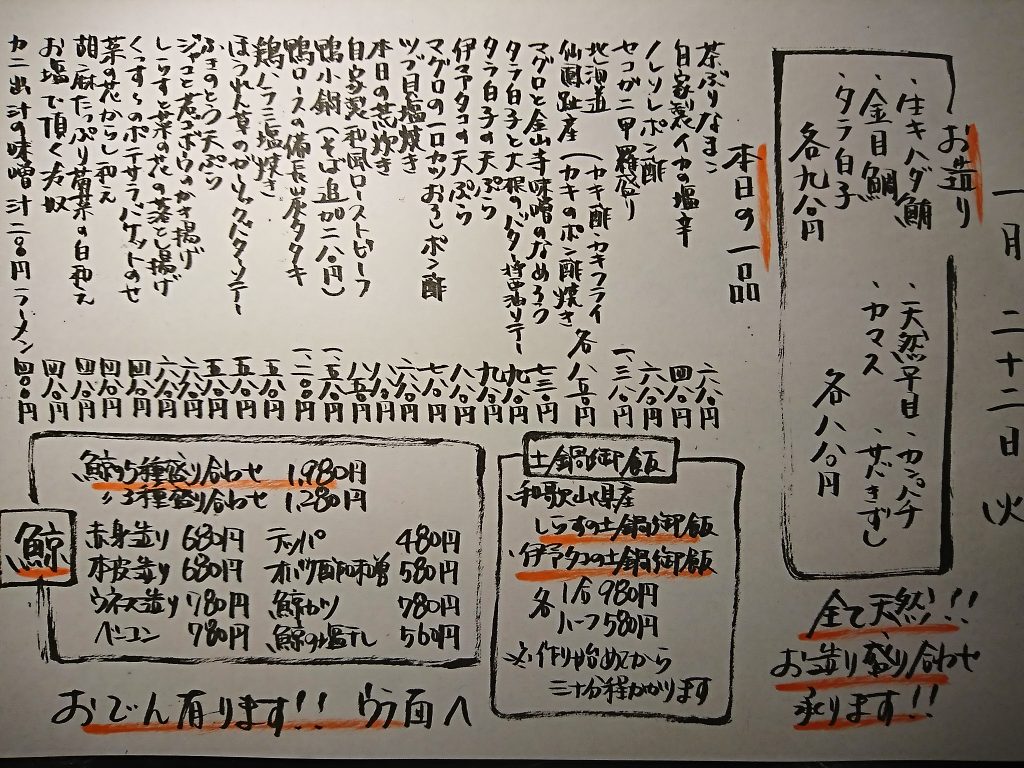 一月二十二日火
お造り
・生キハダ鮪
・金目鯛
・タラ白子
各九八〇円
・天然平目・カンパチ
・カマス・さばきずし
各八八〇円
全て天然!!
お造り盛り合わせ
承ります!!
本日の一品
茶ぶりなまこ 六八〇円
自家製イカの塩辛 四八〇円
ノレソレポン酢 六八〇円
セコガニ甲羅盛り 一、三八〇円
北海道
仙鳳趾産(カキ酢・カキフライ
カキのポン酢焼き 各八五〇円
マグロと金山寺味噌のなめろう 七三〇円
タラ白子と大根のバター醤油ソテー 九八〇円
タラ白子の天ぷら 九八〇円
伊予タコの天ぷら 八八〇円
マグロの一口カツおろしポン酢 七八〇円
ツブ貝塩焼き 六八〇円
本日の荒炊き 八八〇円
自家製和風ローストビーフ 八五〇円
鴨小鍋(そば追加二八〇円) 一、五八〇円
鴨ロースの備長炭タタキ 一、二八〇円
鶏ハラミ塩焼き 五八〇円
ほうれん草のガーリックバターソテー 五八〇円
ふきのとう天ぷら 五八〇円
ジャコと君ゴボウのかき揚げ 六八〇円
しらすと菜の花の落とし揚げ 六八〇円
くっすーのポテサラバケットのせ 四八〇円
菜の花からし和え 四八〇円
胡麻たっぷり菊菜の白和え 四八〇円
お塩で頂く冷奴 四八〇円
カニ出汁の味噌汁二八〇円ラーメン 四八〇円
土鍋御飯
・和歌山県産
しらすの土鍋御飯
・伊予タコの土鍋御飯
各 1合980円
ハーフ580円
※作り始めてから
三十分程かかります
鯨
鯨の5種盛り合わせ 1,980円
〃3種盛り合わせ 1,280円
赤身造り 680円 テッパ 480円
本皮造り 680円 オバケ酢味噌 580円
ウネス造り 780円 鯨カツ 780円
ベーコン 780円 鯨の塩干し 560円
おでん有ります!! ウラ面へ